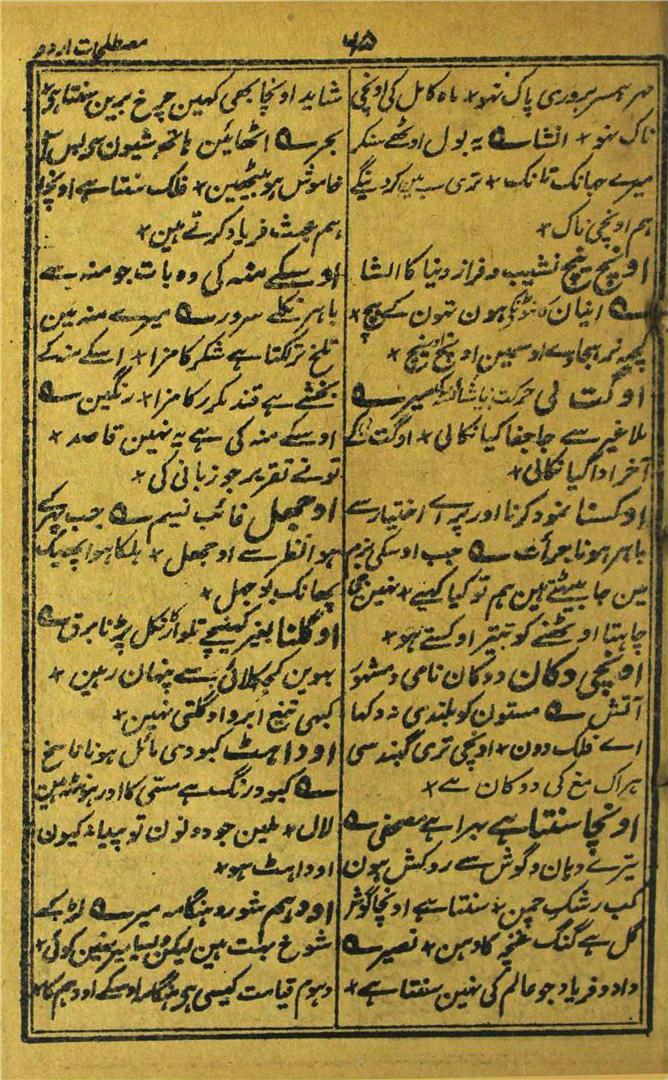 ۶۵
مصطلحات اردو
مہر ہمسر بروری پاک نہو × ماہ کامل کی اونچی
ناک نہو × انشا ؎ یہ بول اوٹھے سنکر
میرے جھانک تانک × تری سب میں کر دینگے
ہم اونچی ناک ×
اونچ نیچ نشیب و فراز دنیا کا انشا
؎ اینان کا ہون تہون کے بیچ ×
کچھ نہ سمجھاوے اوسمین اونچ نیچ ×
اوگت لی حرکت میر ؎
ملا غیر سے جا جفا کیا نکالی × اوگت لیکے
آخر ادا کیا نکالی ×
اوکسنا نمود کرنا اور پرے اختیار سے
باہر ہونا جرأت ؎ جب اوسکی بزم
مین جا بیٹھتے ہین ہم تو کیا کہیے × نہین جی
چاہتا اوٹھنے کو بتیر اوکستے ہو ×
اونچی دکان دوکان نامی و مشہور
آتش ؎ مستون کو بلندی نہ دکہا
اے فلک دون × اونچی تری گنبد سی
ہر اک مغ کی دوکان ہے ×
اونچا سنتا ہے بہرا ہے مصحفی ؎
تیرے دہان و گوش سے روکش ہون
کب رشک چمن × سنتا ہے اونچا گوش
گل ہے گنگ غنچہ کا دہن × نصیر ؎
داد و فریاد جو عالم کی نہین سنتا ہے ×
شاید اونچا بھی کہین چرخ برین سنتا ہو ×
بحر ؎ اٹھائین ہاتھ شیون سی بس
خاموش ہو بیٹھین × فلک سنتا ہے اونچا
ہم عبث فریاد کرتے ہین ×
اوسکے منہ کی وہ بات جو منہ سے
باہر نکلے سرور ؎ میرے منہ مین
تلخ تر لگتا ہے شکر کا مزا × اسکے منہ کے
بخشے ہے قند مکرر کا مزا × رنگین ؎
اوسکے منہ کی ہے یہ نہین قاصد ×
تونے تقریر جو زبانی کی ×
اوجھل غائب نسیم ؎ جب مہر کے
ہوا نظر سے اوجھل × ہلکا ہوا
بوجھل ×
اوگلنا بغیر کھینچے تلوار کا نکل پڑنا برق ؎
بہوین کج کلائی سے پنہان رہین ×
کبھی تیغ ابرو اوگلتی نہین ×
اوداہٹ کبودی مائل ہونا ناسخ
؎ کبود رنگ ہے مستی کا اور ہونٹھ ہین
لال × ملین جو دونون تو پیدا نہ کیون
اوداہٹ ہو ×
اودہم شور و ہنگامہ میر ؎ لڑکے
شوخ بہت ہین لیکن ویسا میر نہین کوئی ×
دہوم قیامت کیسی ہی ہنگامہ اوسکے اودہم کا ×